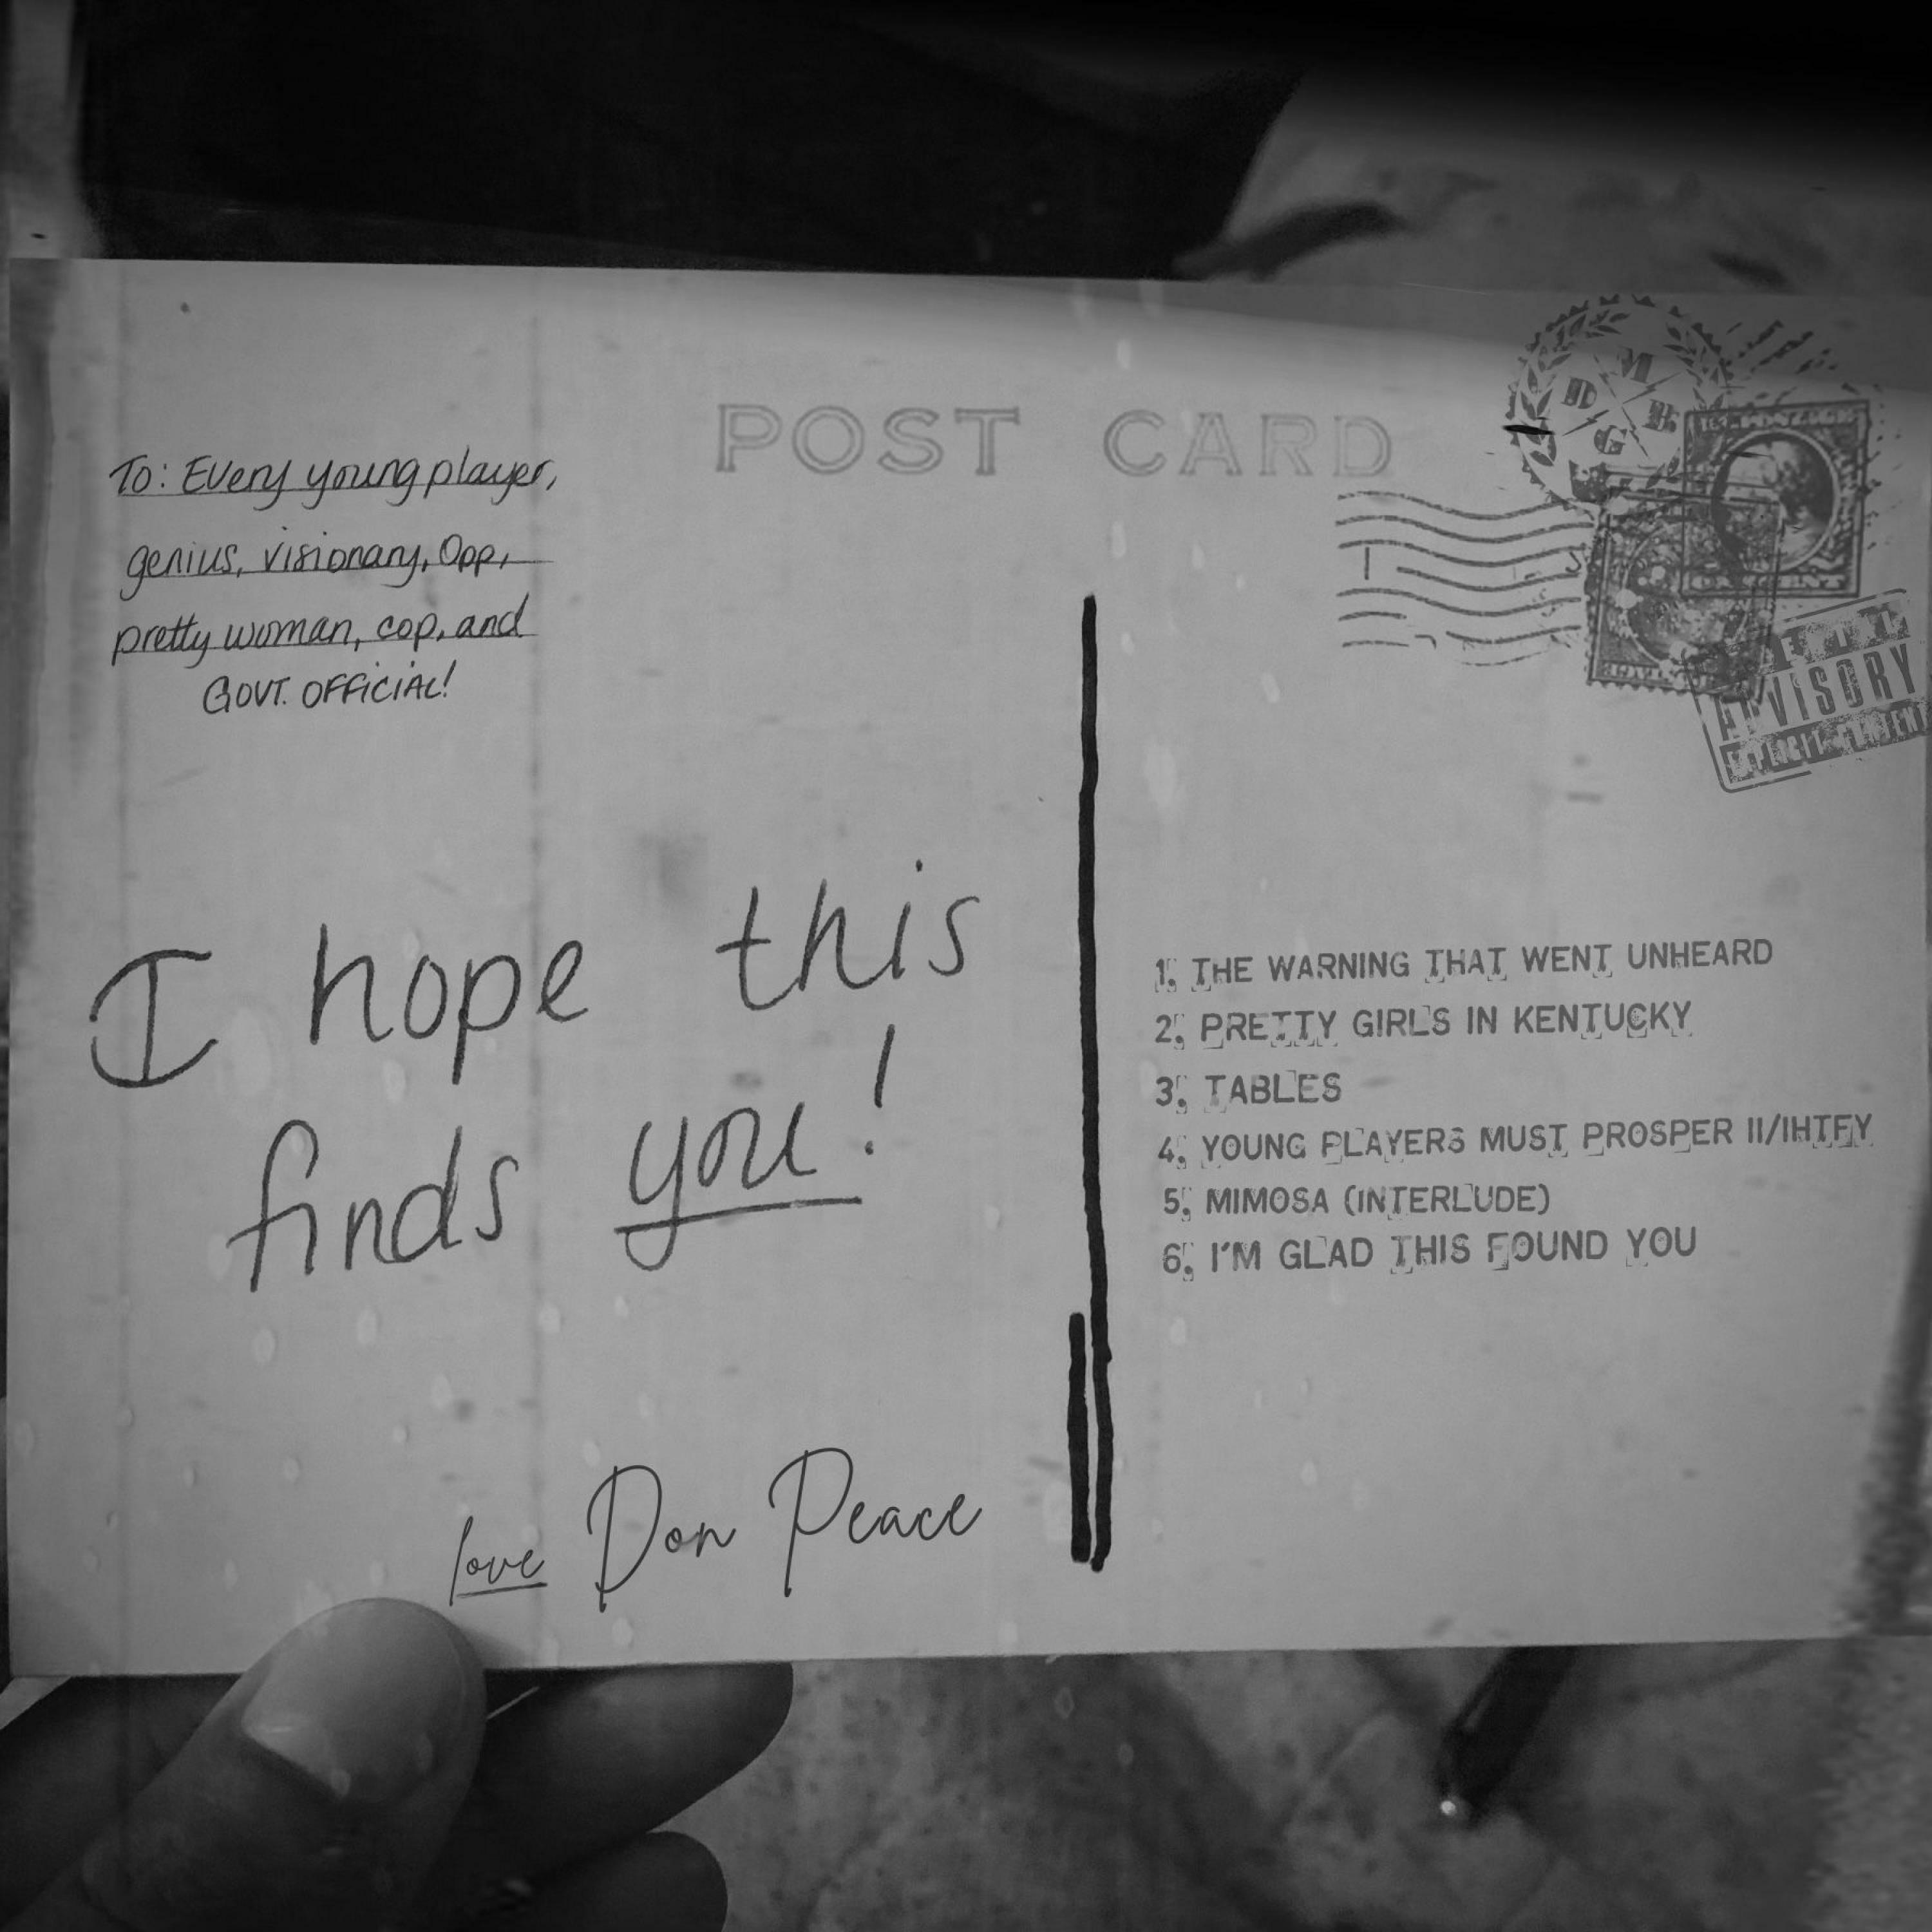 POST CARD
To: Every young player,
genius, visionary, Opp,
pretty woman, cop, and
GOVT. OFFICIAL!
D M E G
ADVISORY
EXPLICIT CONTENT
I hope this
finds you!
love Don Peace
1. THE WARNING THAT WENT UNHEARD
2. PRETTY GIRLS IN KENTUCKY
3. TABLES
4. YOUNG PLAYERS MUST PROSPER II/IHTFY
5. MIMOSA (INTERLUDE)
6. I'M GLAD THIS FOUND YOU